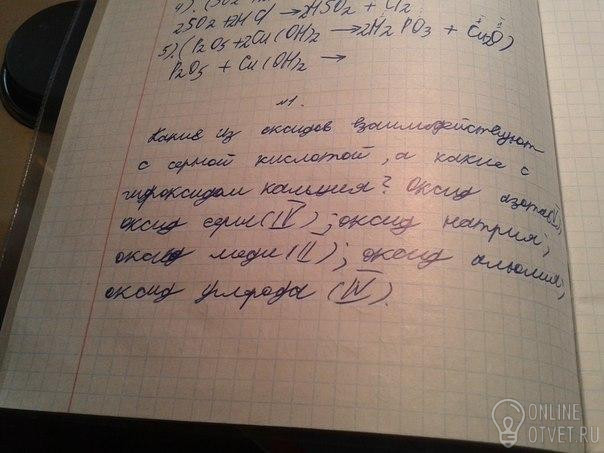 2SO2+2HCl→2HSO2+Cl2
5).(P2O5+2Cu(OH)2→2H2PO3+Cu2O)
P2O5+Cu(OH)2→
№1.
Какие из оксидов взаимодействуют
с серной кислотой, а какие с
гидроксидом кальция? Оксид азота
оксид серы (IV); оксид натрия,
оксид меди (II); оксид алюмия;
оксид углерода (IV).
ONLINE
OTVET.RU